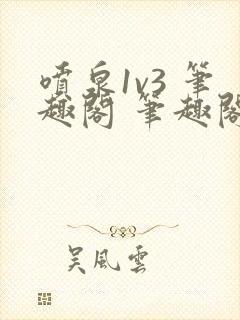 噴泉1v3 筆
趣閣 筆趣閣
吴風雲